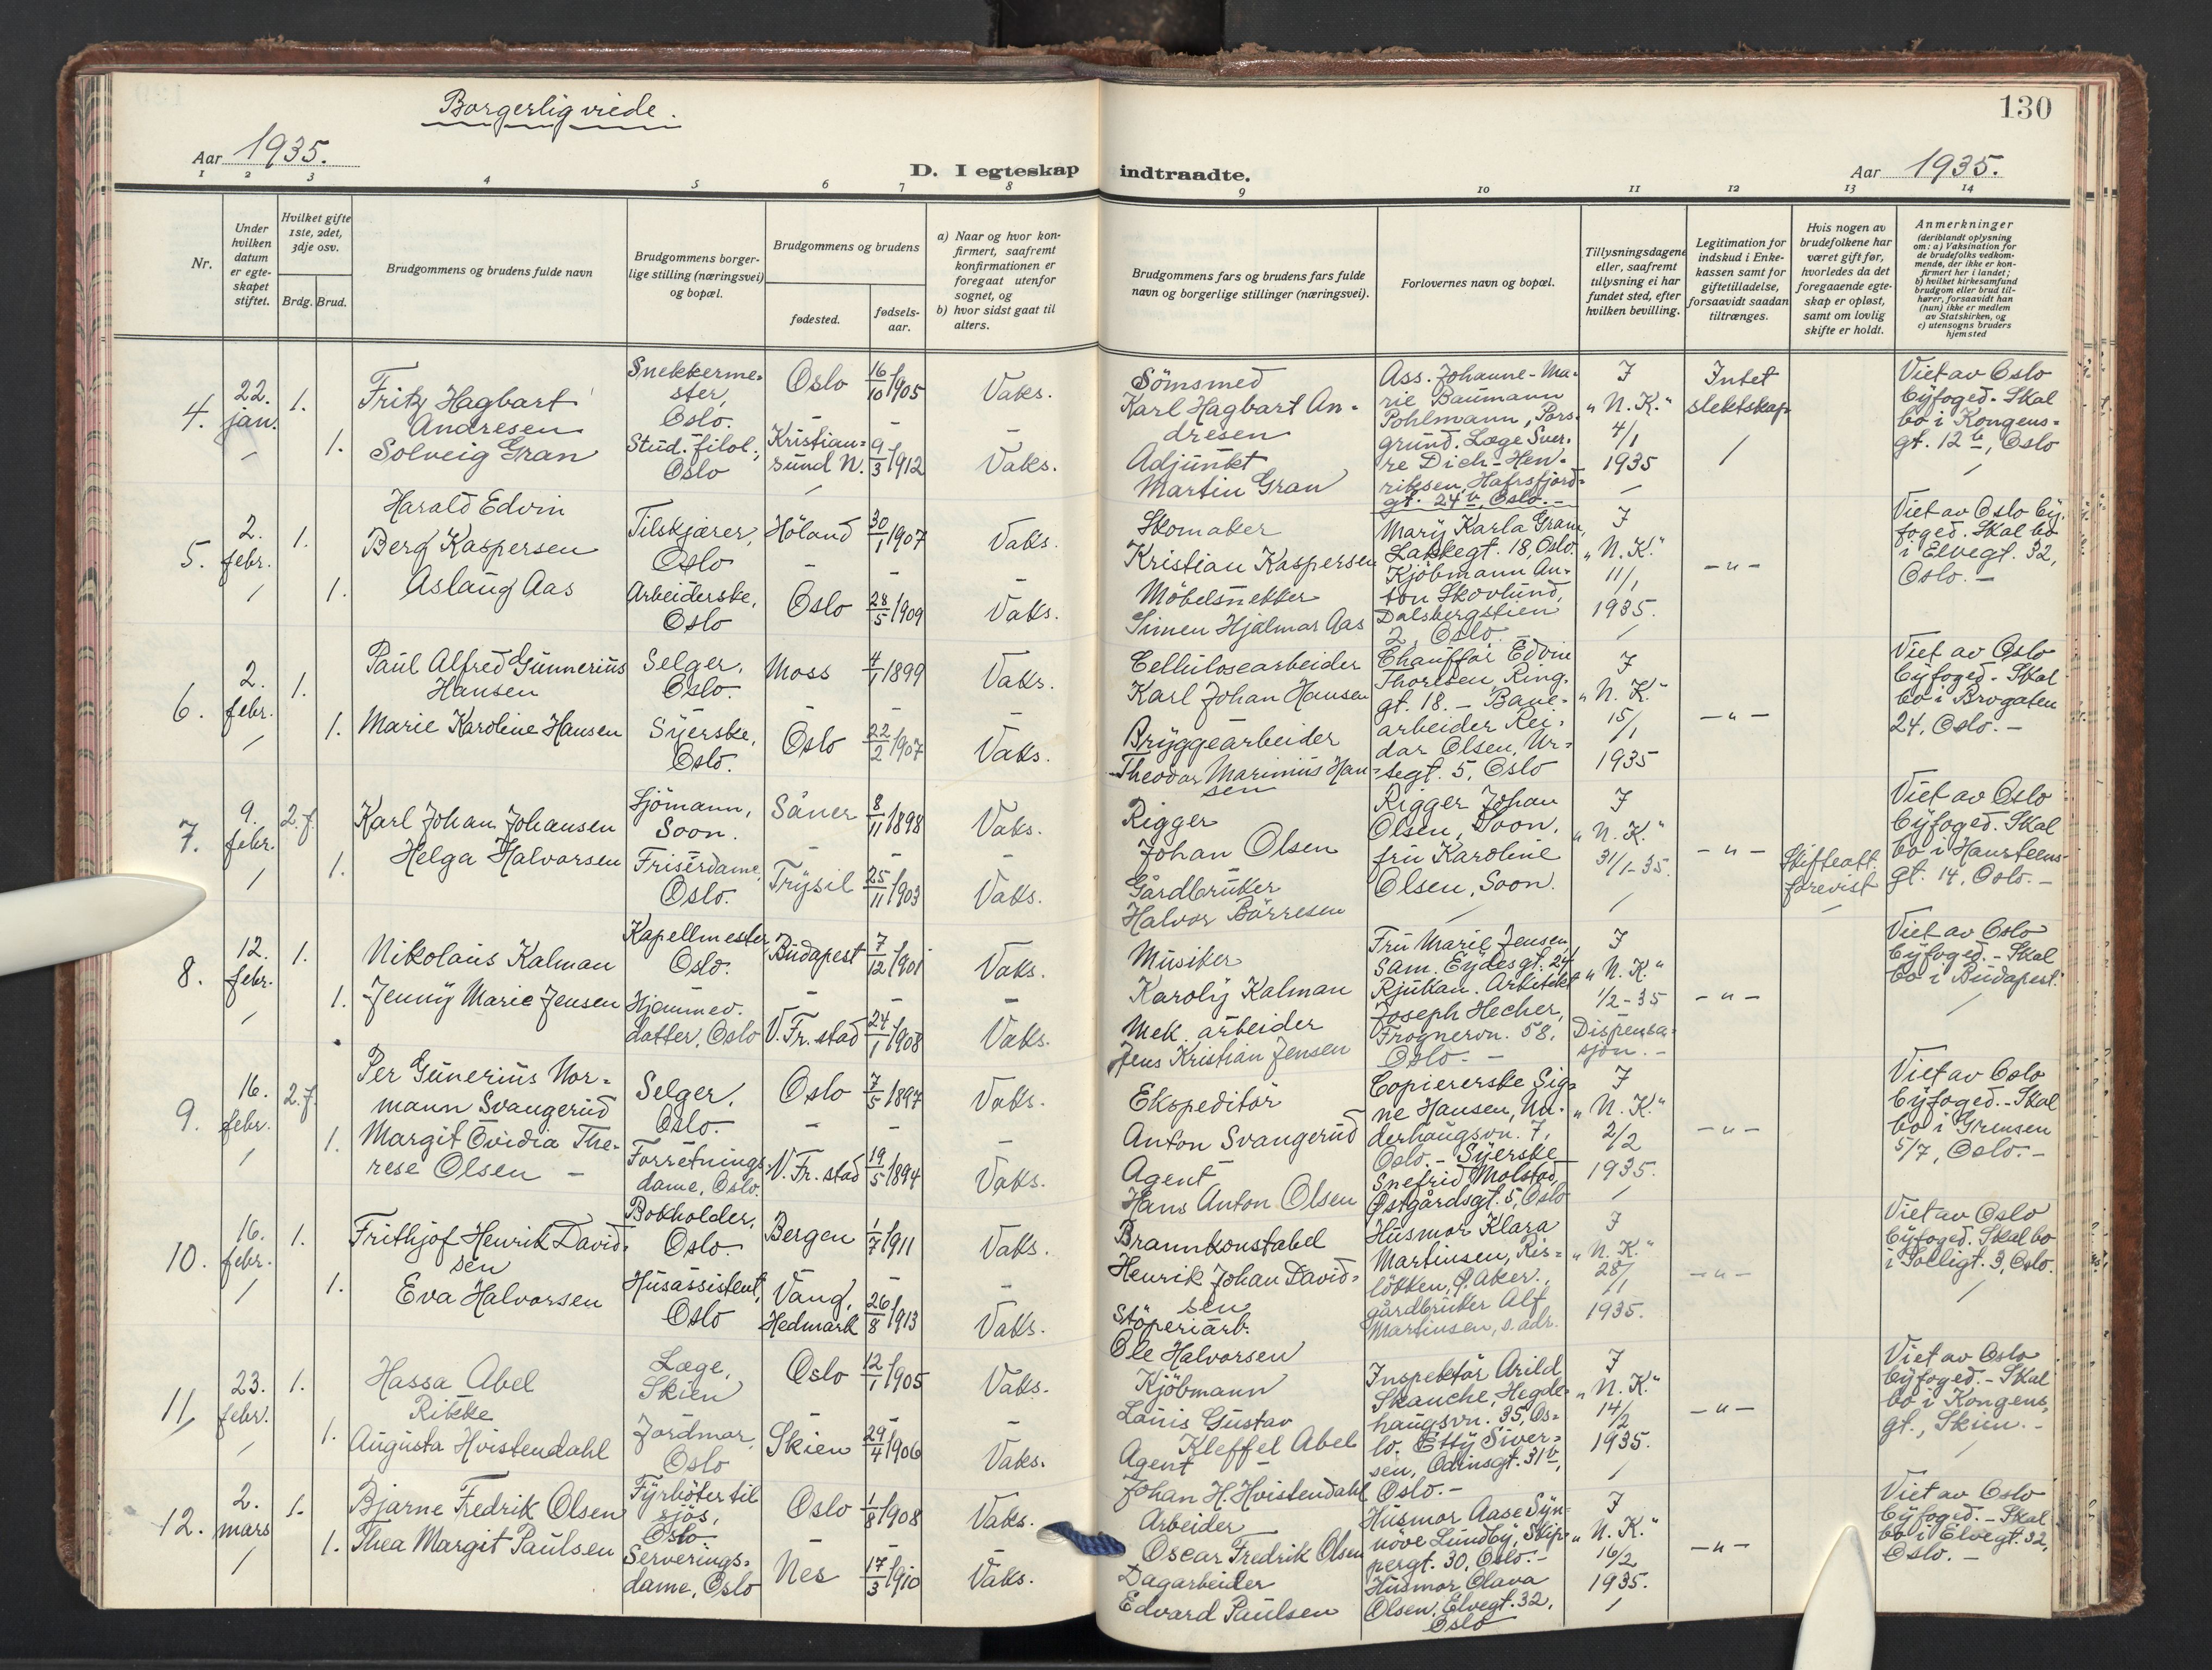 Borgerlig viede.
130
Aar 1935.
D. I egteskap indtraadte.
Aar 1935.
1 2 3 4 5 6 7 8 9 10 11 12 13 14
Nr.
Under
hvilken
datum
er egte-
skapet
stiftet.
Hvilket gifte
1ste, 2det,
3dje osv.
Brdg. Brud.
Brudgommens og brudens fulde navn
Brudgommens borger-
lige stilling (næringsvei)
og bopæl.
Brudgommens og brudens
fødested.
fødsels-
aar.
a) Naar og hvor kon-
firmert, saafremt
konfirmationen er
foregaat utenfor
sognet, og
b) hvor sidst gaat til
alters.
Brudgommens fars og brudens fars fulde
navn og borgerlige stillinger (næringsvei).
Forlovernes navn og bopæl.
Tillysningsdagene
eller, saafremt
tillysning ei har
fundet sted, efter
hvilken bevilling.
Legitimation for
indskud i Enke-
kassen samt for
giftetilladelse,
forsaavidt saadan
tiltrænges.
Hvis nogen av
brudefolkene har
været gift før,
hvorledes da det
foregaaende egte-
skap er opløst,
samt om lovlig
skifte er holdt.
Anmerkninger
(deriblandt oplysning
om: a) Vaksination for
de brudefolks vedkom-
mende, der ikke er kon-
firmert her i landet;
b) hvilket kirkesamfund
brudgom eller brud til-
hører, forsaavidt han
(hun) ikke er medlem
av Statskirken, og
c) utensogns bruders
hjemsted
4.
22.
jan.
1.
1.
Fritz Hagbart
Andresen
Solveig Gran
Snekkerme-
ster,
Oslo.
Stud. filol.,
Oslo
Oslo
Kristian-
sund N.
16/10 1905
9/3 1912
Vaks.
Vaks.
Sömsmed
Karl Hagbart An-
dresen
Adjunkt
Martin Gran
Ass. Johanne-Ma-
rie Baumann
Pohlmann, Pors-
grund. Læge Sver-
re Dich-Hen-
riksen, Hafrsfjord-
gt. 24b, Oslo.-
I
"N.K."
4/1
1935
Intet
slektskap
Viet av Oslo
byfoged. Skal
bo i Kongens-
gt. 12b, Oslo
5.
2.
febr.
1.
1.
Harald Edvin
Berg Kaspersen
Aslaug Aas
Tilskjærer,
Oslo
Arbeiderske,
Oslo
Höland
Oslo
30/1 1907
28/5 1909
Vaks.
Vaks.
Skomaker
Kristian Kaspersen
Möbelsnekker
Simen Hjalmar Aas
Mary Karla Gran,
Lakkegt. 18, Oslo.
Kjöbmann An-
ton Skovlund,
Dalsbergstien
2, Oslo.
I
"N.K."
11/1
1935.
-"-
Viet av Oslo by-
foged. Skal bo
i Elvegt. 32,
Oslo.-
6.
2.
febr.
1.
1.
Paul Alfred Gunnerius
Hansen
Marie Karoline Hansen
Selger,
Oslo.
Syerske,
Oslo.
Moss
Oslo
4/1 1899
22/2 1907
Vaks.
Vaks.
Cellulosearbeider
Karl Johan Hansen
Bryggearbeider
Theodor Marinius Han-
sen
Chauffør Edvin
Thorlsen, Ring-
gt. 18.- Bane-
arbeider Rei-
dar Olsen, Ur-
tegt. 5, Oslo
I
"N.K."
15/1
1935
-"-
Viet av Oslo
byfoged. Skal
bo i Brogaten
24, Oslo.-
7.
9.
febr.
2.f.
1.
Karl Johan Johansen
Helga Halvorsen
Sjömann,
Soon.
Frisérdame,
Oslo.
Såner
Trysil
8/11 1898
25/11 1903
Vaks.
Vaks.
Rigger
Johan Olsen
Gårdbruker
Halvor Börresen
Rigger Johan
Olsen, Soon,
fru Karoline
Olsen, Soon.
I
"N.K."
31/1-35.
-"-
Skifteatt.
forevist
Viet av Oslo
byfoged. Skal
bo i Hansteens-
gt. 14, Oslo.-
8.
12.
febr.
1.
1.
Nikolaus Kalman
Jenny Marie Jensen
Kapellmester,
Oslo.
Hjemmev.
datter, Oslo
Budapest
V. Fr.stad
7/12 1901
24/1 1908
Vaks.
Vaks.
Musiker
Karoly Kalman
Mek. arbeider
Jens Kristian Jensen
Fru Marie Jensen,
Sam. Eydesgt. 24,
Rjukan. Arkitekt
Joseph Hecher,
Frognervn. 58,
Oslo.-
I
"N.K."
1/2-35
Dispensa-
sjon.-
-"-
Viet av Oslo
byfoged.- Skal
bo i Budapest.
9.
16.
febr.
2.f.
1.
Per Gunerius Nor-
mann Svangerud
Margit Ovidia The-
rese Olsen -
Selger,
Oslo.
Forretnings-
dame, Oslo.
Oslo
V. Fr.stad
7/5 1897
19/5 1894
Vaks.
Vaks.
Ekspeditör
Anton Svangerud
Agent
Hans Anton Olsen
Copiererske Sig-
ne Hansen, Un-
derhaugsvn. 7,
Oslo.- Syerske
Snefrid Molstad,
Østgårdsgt. 5, Oslo
I
"N.K."
2/2
1935.
-"-
Viet av Oslo
byfoged.- Skal
bo i Grensen
5/7, Oslo.-
10.
16.
febr.
1.
1.
Frithjof Henrik David-
sen
Eva Halvorsen
Bokholder,
Oslo.
Husassistent,
Oslo
Bergen
Vang,
Hedmark
1/7 1911
26/8 1913
Vaks.
Vaks.
Brannkonstabel
Henrik Johan David-
sen
Stöperiarb.
Ole Halvorsen
Husmor Klara
Martinsen, Ris-
lökken, Ø. Aker.,
gårdbruker Alf
Martinsen, s. adr.
I
"N.K."
28/1
1935.
-"-
Viet av Oslo
byfoged. Skal bo
i Solligt. 3, Oslo.
11.
23.
febr.
1.
1.
Hassa Abel
Rikke
Augusta Hvistendahl
Læge,
Skien
Jordmor,
Oslo
Oslo
Skien
12/1 1905
29/4 1906
Vaks.
Vaks.
Kjöbmann
Louis Gustav
Kleffel Abel
Agent
Johan H. Hvistendahl
Inspektør Arild
Skauche, Hegde-
haugsvn. 35, Os-
lo. Etty Siver-
sen, Odinsgt. 31b,
Oslo.-
I
"N.K."
14/2
1935.
-"-
Viet av Oslo
byfoged.- Skal
bo i Kongens-
gt., Skien.-
12.
2.
mars
1.
1.
Bjarne Fredrik Olsen
Thea Margit Paulsen
Fyrböter til
sjös,
Oslo
Serverings-
dame, Oslo
Oslo
Nes
1/8 1908
17/3 1910
Vaks.
Vaks.
Arbeider
Oscar Fredrik Olsen
Dagarbeider
Edvard Paulsen
Husmor Aase Syn-
növe Lundby, Skip-
pergt. 30, Oslo.-
Husmor Olava
Olsen, Elvegt. 32,
Oslo
I
"N.K."
16/2
1935.
-"-
Viet av Oslo
byfoged.- Skal
bo i Elvegt. 32,
Oslo.-